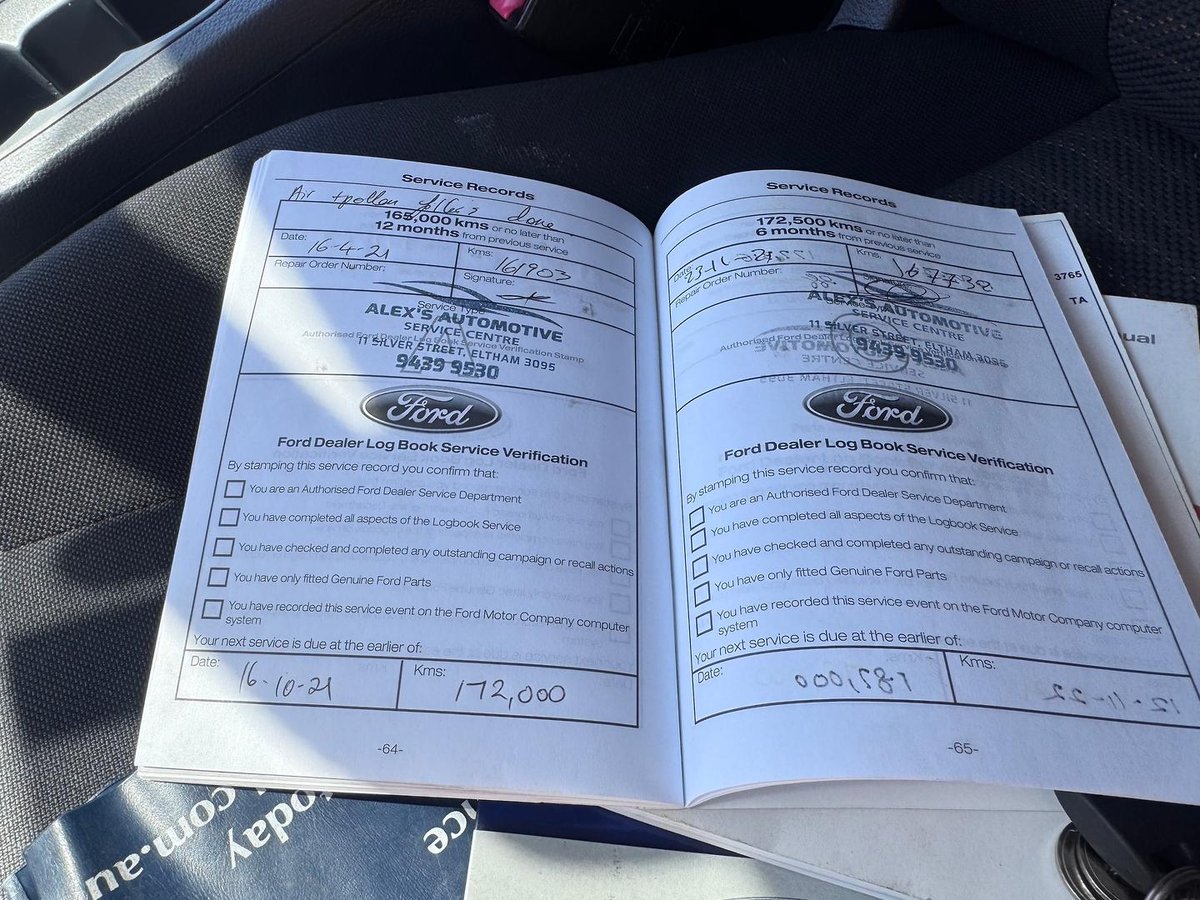 Service Records
Air + pollen filters done
165,000 kms or no later than
12 months from previous service
Date:
16-4-21
Kms:
161903
Repair Order Number:
Signature:
Service Type
ALEX'S AUTOMOTIVE
SERVICE CENTRE
Authorised Ford Dealer Log Book Service Verification Stamp
11 SILVER STREET, ELTHAM 3095
9439 9530
Ford
Ford Dealer Log Book Service Verification
By stamping this service record you confirm that:
You are an Authorised Ford Dealer Service Department
You have completed all aspects of the Logbook Service
You have checked and completed any outstanding campaign or recall actions
You have only fitted Genuine Ford Parts
You have recorded this service event on the Ford Motor Company computer
system
Your next service is due at the earlier of:
Date:
16-10-21
Kms:
172,000
-64-
Service Records
172,500 kms or no later than
6 months from previous service
Date:
Kms:
167738
Repair Order Number:
Signature:
ALEX'S AUTOMOTIVE
SERVICE CENTRE
Authorised Ford Dealer
11 SILVER STREET, ELTHAM 3095
9439 9530
Ford
Ford Dealer Log Book Service Verification
By stamping this service record you confirm that:
You are an Authorised Ford Dealer Service Department
You have completed all aspects of the Logbook Service
You have checked and completed any outstanding campaign or recall actions
You have only fitted Genuine Ford Parts
You have recorded this service event on the Ford Motor Company computer
system
Your next service is due at the earlier of:
Date:
Kms:
-65-
3765
TA
ual
today
com.au
nce